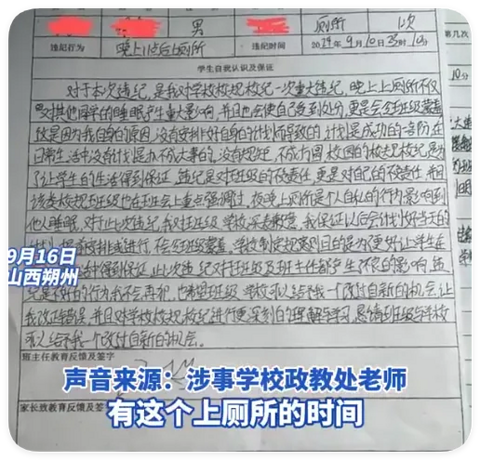 男 厕所 1次
违纪行为 晚上11点后上厕所 违纪时间 2024年9月10日23时10分 第几次
学生自我认识及保证
对于本次违纪,是我对学校校规校纪一次重大违纪,晚上上厕所不仅
对其他同学的睡眠产生重大影响,并且也会使自己受到处分,更是会给班级蒙羞
这是因为我自身的原因,没有安排好自身的计划而导致的,计划是成功的一部份,在
日常生活中没有计划是办不成大事的,没有规矩,不成方圆,校园的校规校纪是为
了让学生的生活得到保证,违纪是对班级的不负责任,更是对自己的不负责任,并且
该条校规班级也在班会上重点强调过,夜晚上厕所是个人自私的行为,影响到
他人睡眠,对于此次违纪,我对班级,学校深表歉意,我保证以后会计划好各天的
计划,提前安排或进行,不给班级蒙羞。学校制定规章制度目的是为更好让学生在
得到保证,此次违纪对于班级及班主任都产生了不良的影响,违
纪是不好的行为我不会再犯,也希望班级,学校可以给予我一个改过自新的机会,让
我改正错误,并且对学校校规校纪进行更深刻的理解学习,恳请班级与学校
可以给予我一个改过自新的机会。
9月16日
山西朔州
班主任教育反馈及签字
声音来源:涉事学校政教处老师
家长放教育反馈及签
有这个上厕所的时间